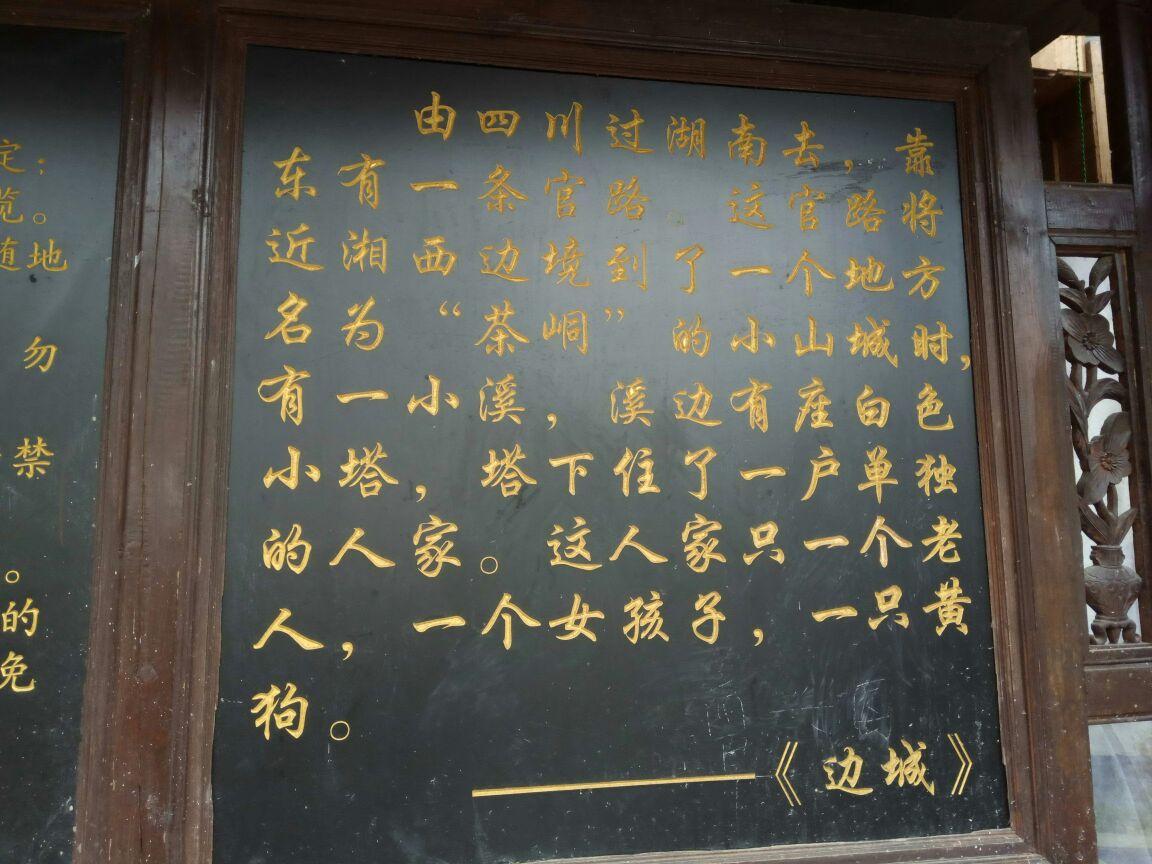 定；
览。
随地
勿
禁
。
的
免
由四川过湖南去，靠
东有一条官路。这官路将
近湘西边境到了一个地方
名为“茶峒”的小山城时，
有一小溪，溪边有座白色
小塔，塔下住了一户单独
的人家。这人家只一个老
人，一个女孩子，一只黄
狗。
——《边城》